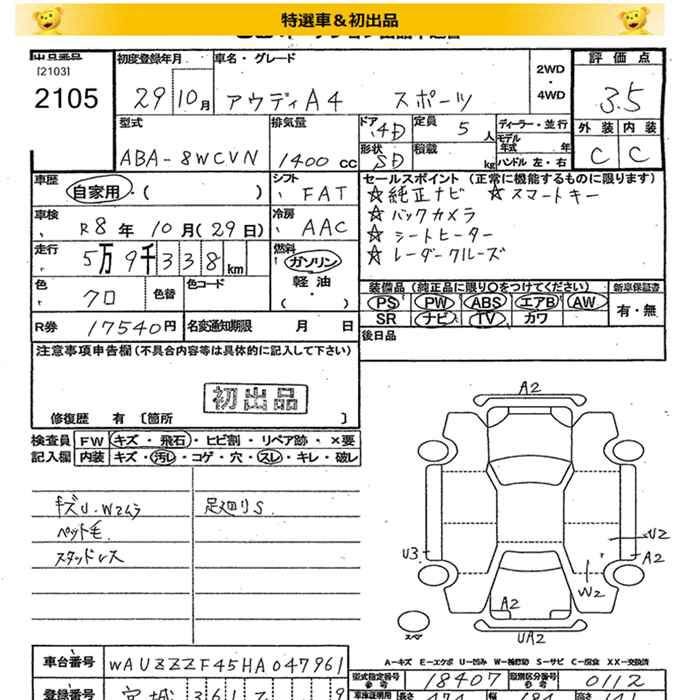 特選車＆初出品
[2103]
2105
初度登録年月
29 10月
車名・グレード
アウディA4 スポーツ
2WD
・
4WD
評価点
3.5
外装 内装
C C
型式
ABA-8WCVN
排気量
1400 cc
ドア 4D
形状 SD
定員 5 人
積載 kg
ディーラー・並行
モデル年式 年
ハンドル 左・右
車歴
自家用・( )
シフト
FAT
車検
R8年 10月(29日)
冷房
AAC
走行
5万9千338km
燃料
ガソリン
軽油
( )
色
クロ
色替
色コード
R券 17540円
名変通知期限 月 日
セールスポイント (正常に機能するものに限ります)
☆純正ナビ ☆スマートキー
☆バックカメラ
☆シートヒーター
☆レーダークルーズ
装備品 (純正品に限り〇をつけてください)
新車保証書
PS PW ABS エアB AW
SR ナビ TV カワ
有・無
後日品
注意事項申告欄 (不具合内容等は具体的に記入して下さい)
初出品
修復歴 有 [箇所 ]
検査員記入欄
FW キズ・飛石・ヒビ割・リペア跡・×要
内装 キズ・汚レ・コゲ・穴・スレ・キレ・破レ
キズU・W2ムラ
足廻りS
ペット毛
スタッドレス
A2
U3
U2
A2
W2
A2
UA2
スペア
A-キズ E-エクボ U-凹み W-補修跡 S-サビ C-腐食 XX-交換済
車台番号
WAUZZZF45HA047961
型式指定番号 18407
類別区分番号 0112
登録番号
宮城 361